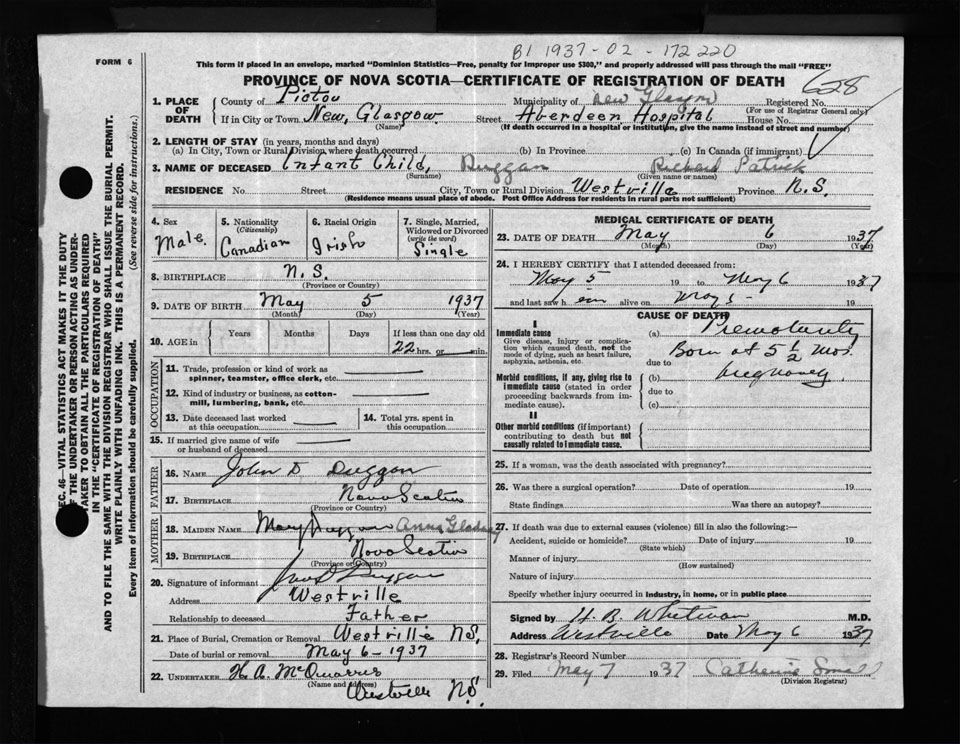 B1 1937-02-172220
FORM 6
This form if placed in an envelope, marked "Dominion Statistics—Free, penalty for improper use $300," and properly addressed will pass through the mail "FREE"
PROVINCE OF NOVA SCOTIA—CERTIFICATE OF REGISTRATION OF DEATH
628
1. PLACE OF DEATH
County of Pictou Municipality of New Glasgow Registered No.
(For use of Registrar General only)
If in City or Town New Glasgow Street Aberdeen Hospital House No.
(Name) (If death occurred in a hospital or institution, give the name instead of street and number)
2. LENGTH OF STAY (in years, months and days)
(a) In City, Town or Rural Division where death occurred (b) In Province (c) In Canada (if immigrant)
3. NAME OF DECEASED Infant Child, Duggan Richard Patrick
(Surname) (Given name or names)
RESIDENCE No. Street City, Town or Rural Division Westville Province N.S.
(Residence means usual place of abode. Post Office Address for residents in rural parts not sufficient)
4. Sex
Male.
5. Nationality (Citizenship)
Canadian
6. Racial Origin
Irish
7. Single, Married, Widowed or Divorced (write the word)
Single
8. BIRTHPLACE N.S.
(Province or Country)
9. DATE OF BIRTH May 5 1937
(Month) (Day) (Year)
10. AGE in
Years Months Days If less than one day old
22 hrs. or min.
OCCUPATION
11. Trade, profession or kind of work as spinner, teamster, office clerk, etc.
12. Kind of industry or business, as cotton-mill, lumbering, bank, etc.
13. Date deceased last worked at this occupation
14. Total yrs. spent in this occupation
15. If married give name of wife or husband of deceased
FATHER
16. NAME John D Duggan
17. BIRTHPLACE Nova Scotia
(Province or Country)
MOTHER
18. MAIDEN NAME Mary Duggan Anna
19. BIRTHPLACE Nova Scotia
(Province or Country)
20. Signature of informant Duggan
Address Westville
Relationship to deceased Father
21. Place of Burial, Cremation or Removal Westville NS.
Date of burial or removal May 6-1937
22. UNDERTAKER H.A. McQuarrie
(Name and Address)
Westville NS.
MEDICAL CERTIFICATE OF DEATH
23. DATE OF DEATH May 6 1937
(Month) (Day) (Year)
24. I HEREBY CERTIFY that I attended deceased from:
May 5 19 to May 6 1937
and last saw h im alive on May 5 - 19
CAUSE OF DEATH
I
Immediate cause
Give disease, injury or complication which caused death, not the mode of dying, such as heart failure, asphyxia, asthenia, etc.
(a) Prematurity
Born at 5 1/2 mos.
due to
Morbid conditions, if any, giving rise to immediate cause (stated in order proceeding backwards from immediate cause).
(b) pregnancy.
due to
(c)
II
Other morbid conditions (if important) contributing to death but not causally related to immediate cause.
25. If a woman, was the death associated with pregnancy?
26. Was there a surgical operation? Date of operation 19
State findings Was there an autopsy?
27. If death was due to external causes (violence) fill in also the following:—
Accident, suicide or homicide? Date of injury 19
(State which)
Manner of injury
(How sustained)
Nature of injury
Specify whether injury occurred in industry, in home, or in public place
Signed by H. B. Whitman M.D.
Address Westville Date May 6 1937
28. Registrar's Record Number
29. Filed May 7 1937 Catherine
(Division Registrar)
SEC. 46—VITAL STATISTICS ACT MAKES IT THE DUTY
OF THE UNDERTAKER OR PERSON ACTING AS UNDER-
TAKER TO OBTAIN ALL THE PARTICULARS REQUIRED
IN THE "CERTIFICATE OF REGISTRATION OF DEATH"
AND TO FILE THE SAME WITH THE DIVISION REGISTRAR WHO SHALL ISSUE THE BURIAL PERMIT.
WRITE PLAINLY WITH UNFADING INK. THIS IS A PERMANENT RECORD.
Every item of information should be carefully supplied. (See reverse side for instructions.)